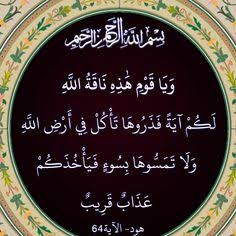 بسم الله الرحمن الرحيم
وَيَا قَوْمِ هَٰذِهِ نَاقَةُ اللَّهِ
لَكُمْ آيَةً فَذَرُوهَا تَأْكُلْ فِي أَرْضِ اللَّهِ
وَلَا تَمَسُّوهَا بِسُوءٍ فَيَأْخُذَكُمْ
عَذَابٌ قَرِيبٌ
هود- الآية64